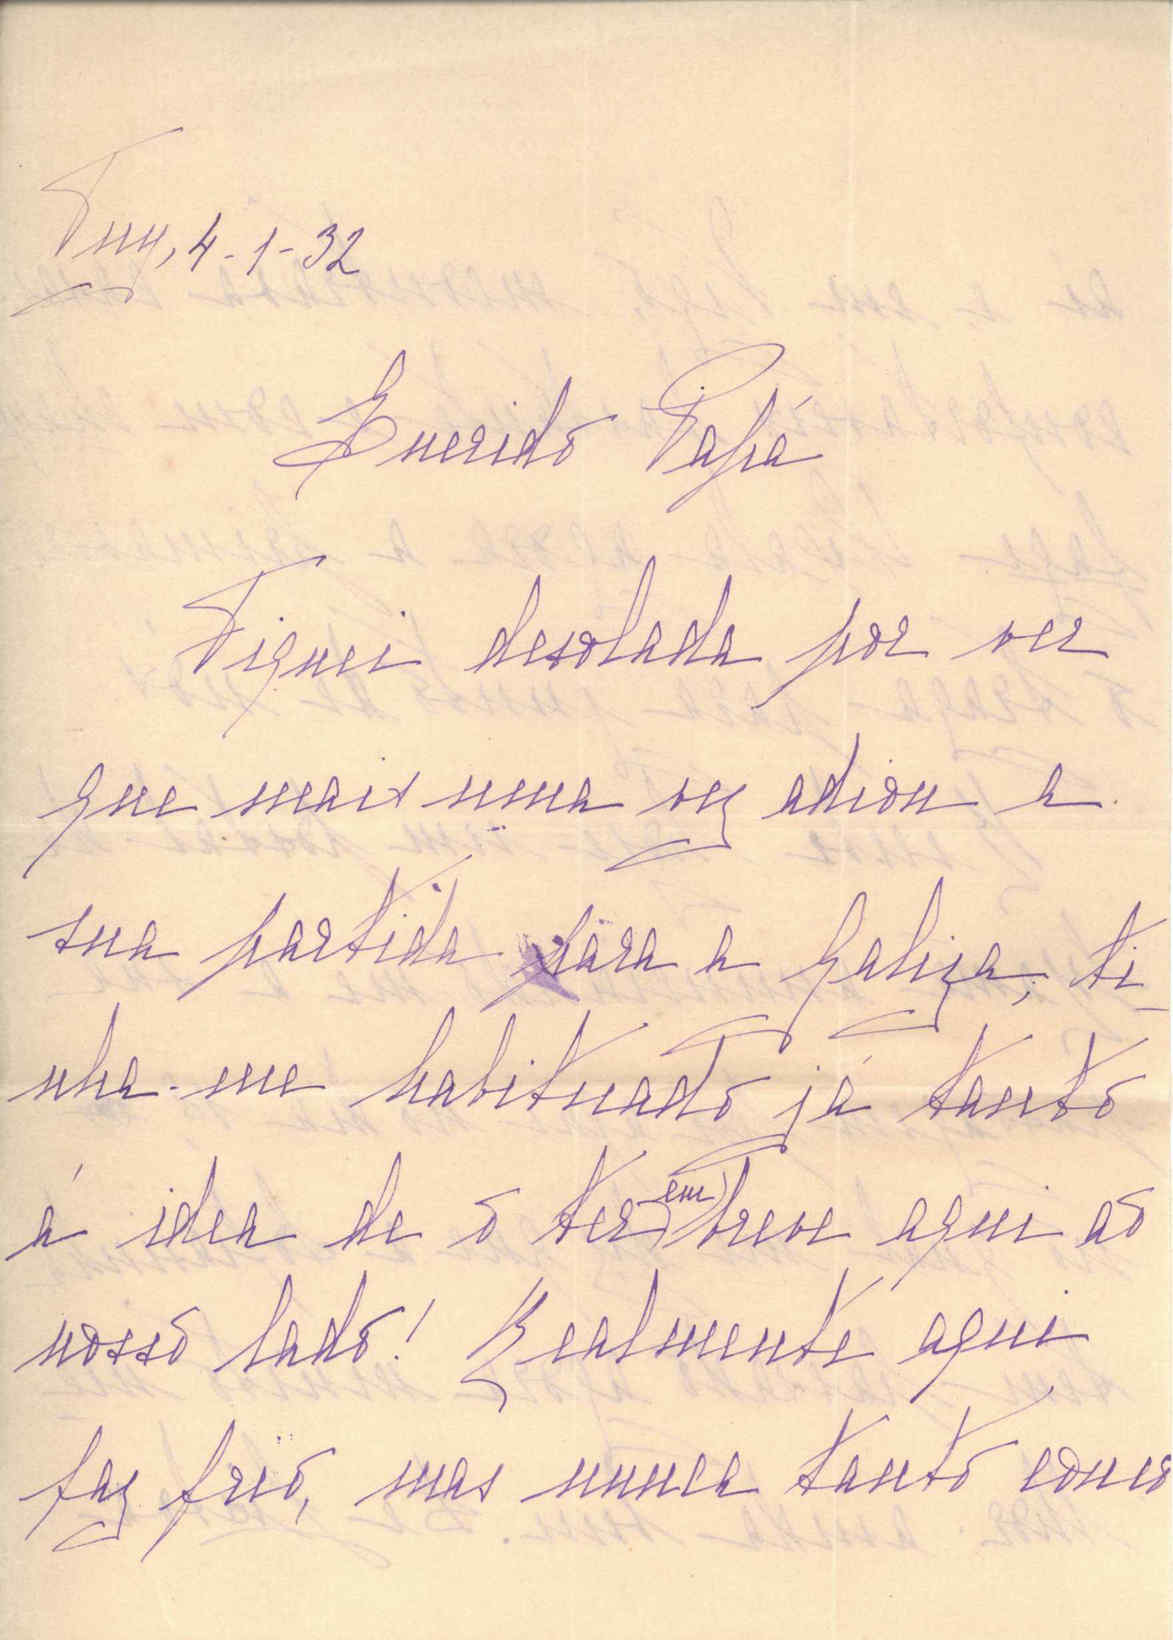 Tuy, 4-1-32
Querido Papá
Fiquei desolada por ver
que mais uma vez adiou a
sua partida para a Galiza, ti-
nha-me habituado já tanto
á idea de o ter em breve aqui ao
nosso lado! Realmente aqui
faz frio, mas nunca tanto como